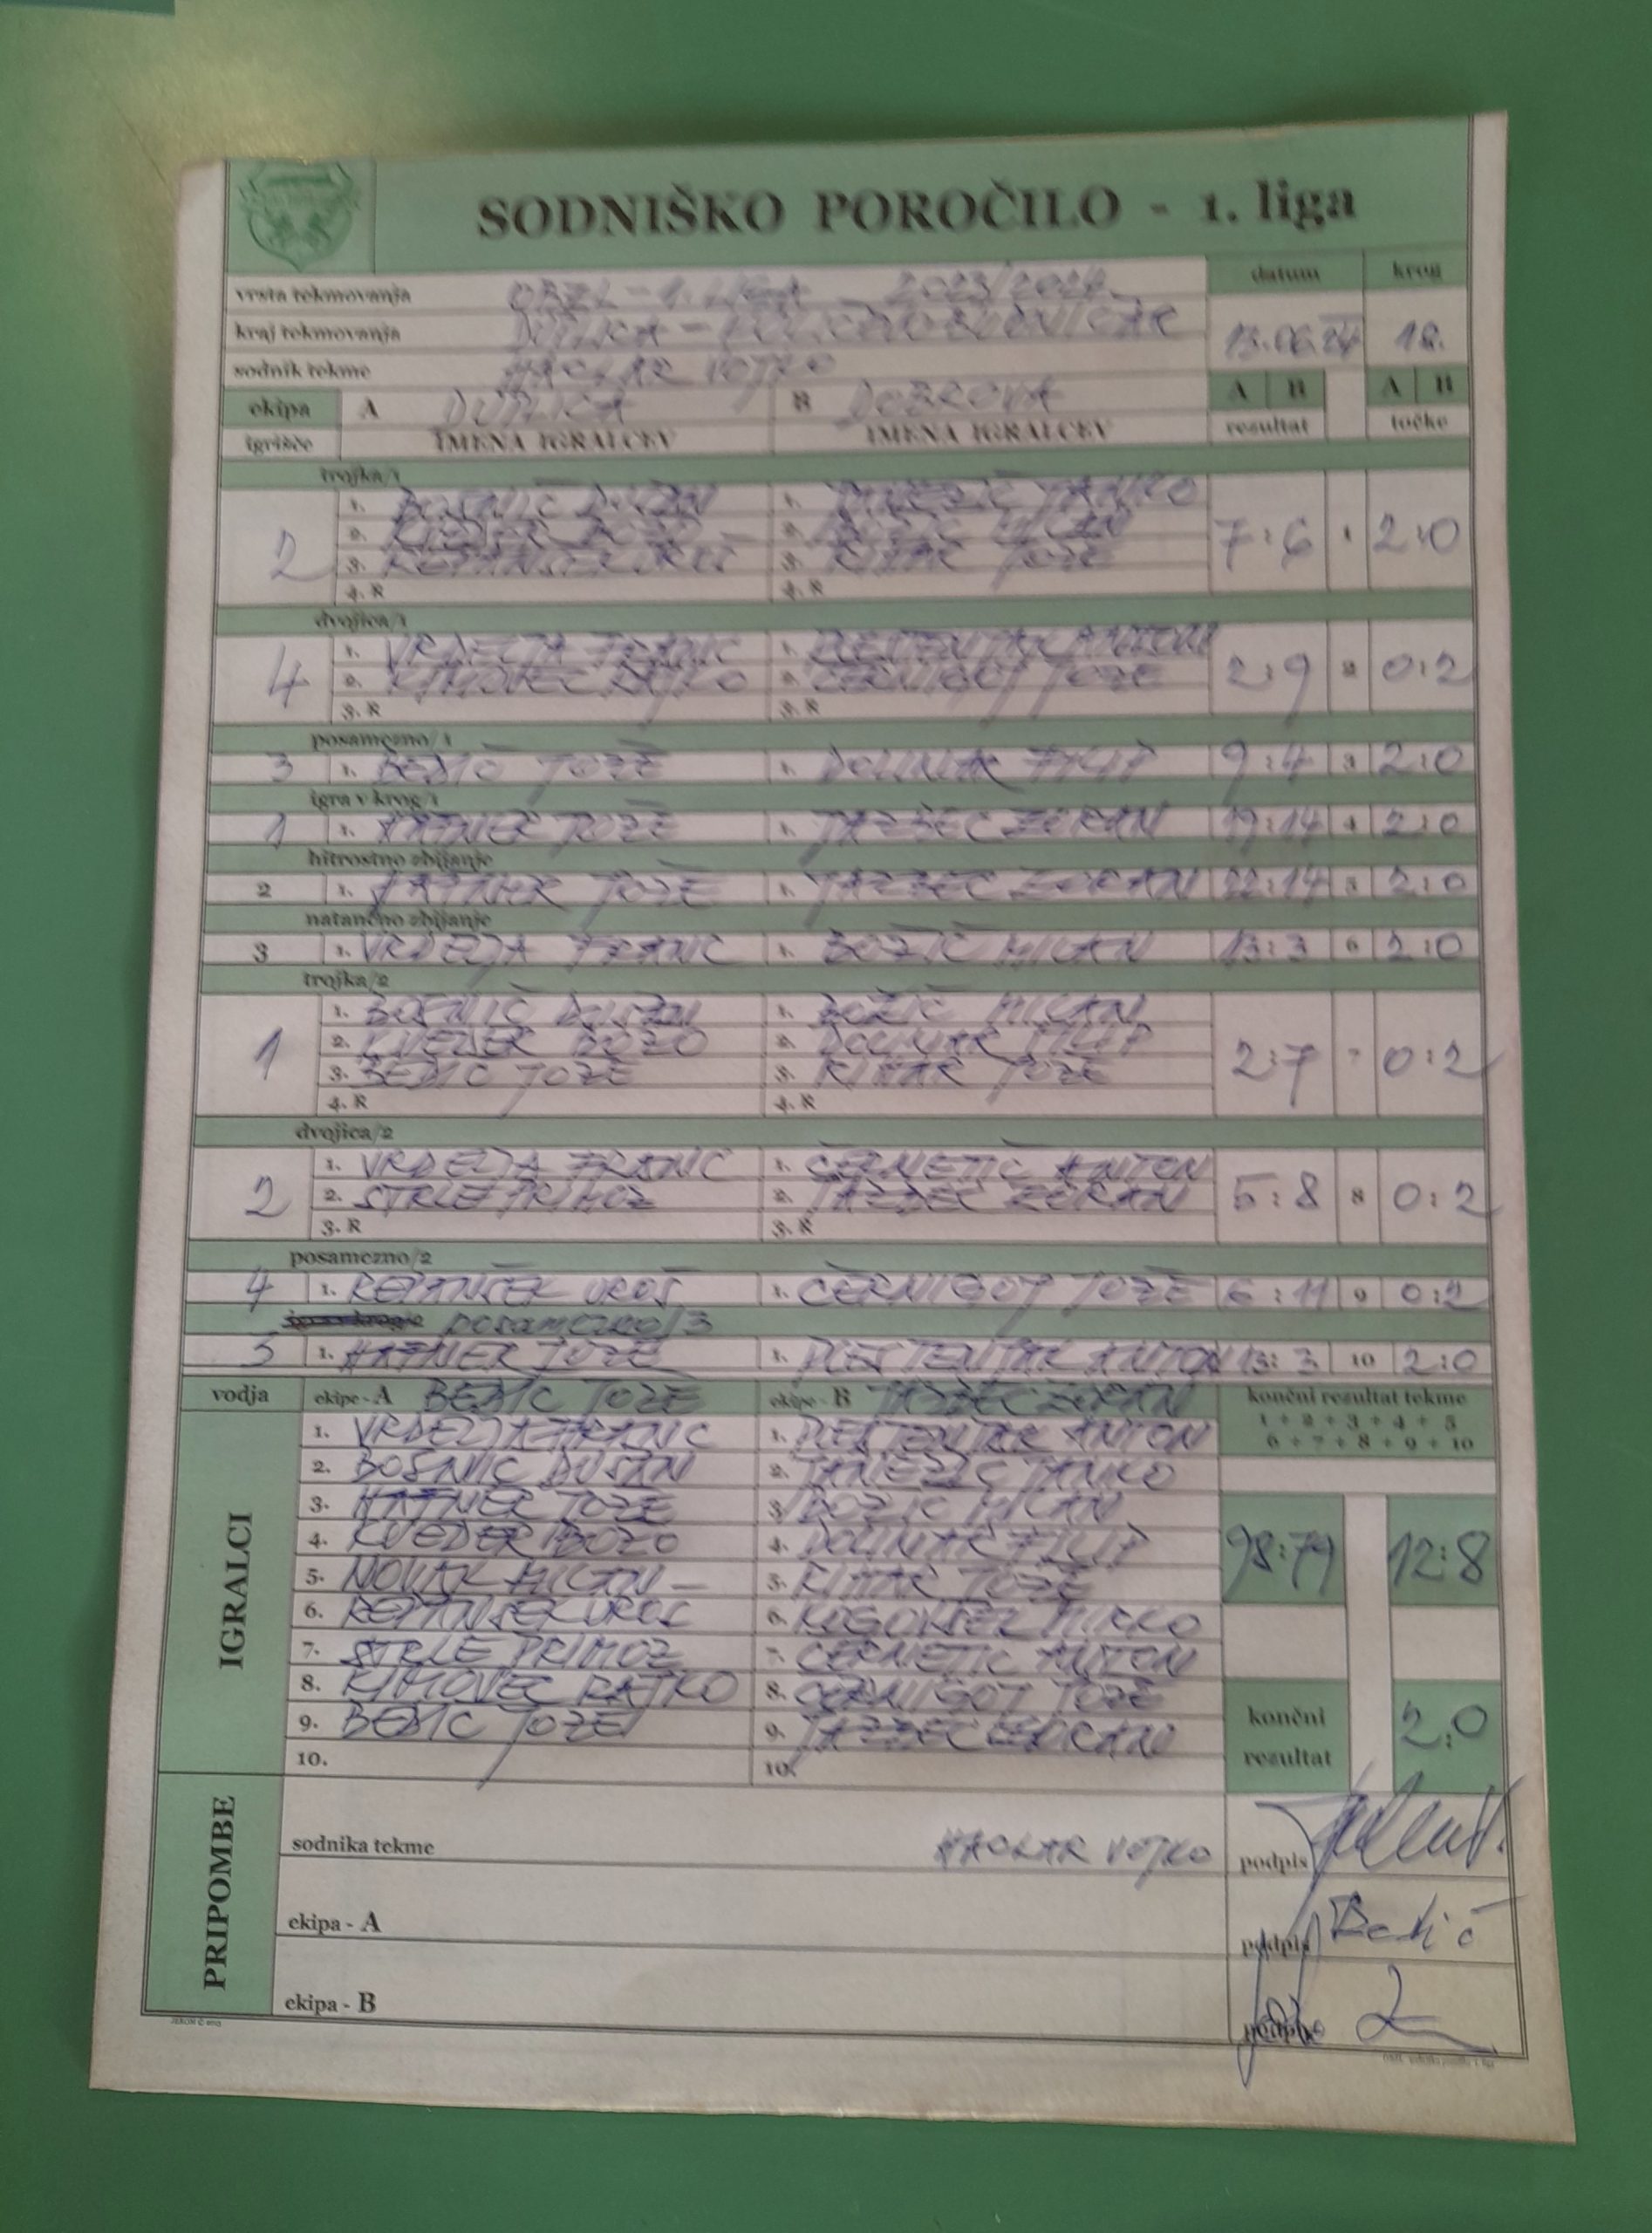 SODNIŠKO POROČILO - 1. liga
datum krog
vrsta tekmovanja OBZL - 1. LIGA 2023/2024
kraj tekmovanja DUPLICA -
13.06.24 18.
sodnik tekme HACLAR VOJKO
ekipa A DUPLICA B DOBROVA A B A B
igrišče IMENA IGRALCEV IMENA IGRALCEV rezultat točke
trojka/1
1. BOSNIČ DUŠAN 1. JANEŽIČ JANKO
2. KVEDER BOŽO 2. BOŽIČ MILAN
2 7:6 1 2:0
3. REPANŠEK UROŠ 3. RIHAR JOŽE
4. R 4. R
dvojica/1
1. VRDELJA FRANC 1. PLESTENJAK ANTON
4 2. KIMOVEC RAJKO 2. ČERNIGOJ JOŽE 2:9 2 0:2
3. R 3. R
posamezno/1
3 1. BEDIČ JOŽE 1. DOLINAR FILIP 9:4 3 2:0
igra v krog/1
1 1. HAFNER JOŽE 1. JAZBEC ZORAN 19:14 4 2:0
hitrostno zbijanje
2 1. HAFNER JOŽE 1. JAZBEC ZORAN 22:14 5 2:0
natančno zbijanje
3 1. VRDELJA FRANC 1. BOŽIČ MILAN 13:3 6 2:0
trojka/2
1. BOSNIČ DUŠAN 1. BOŽIČ MILAN
2. KVEDER BOŽO 2. DOLINAR FILIP
1 2:7 7 0:2
3. BEDIC JOŽE 3. RIHAR JOŽE
4. R 4. R
dvojica/2
1. VRDELJA FRANC 1. ČERNETIČ ANTON
2 2. STRLE PRIMOŽ 2. JAZBEC ZORAN 5:8 8 0:2
3. R 3. R
posamezno/2
4 1. REPANŠEK UROŠ 1. ČERNIGOJ JOŽE 6:11 9 0:2
posamezno/3
3 1. HAFNER JOŽE 1. PLESTENJAK ANTON 13:3 10 2:0
vodja ekipe - A BEDIC JOŽE ekipe - B JAZBEC ZORAN končni rezultat tekme
1 + 2 + 3 + 4 + 5
6 + 7 + 8 + 9 + 10
IGRALCI
1. VRDELJA FRANC 1. PLESTENJAK ANTON
2. BOSNIC DUŠAN 2. JANEŽIČ JANKO
3. HAFNER JOŽE 3. BOŽIC MILAN
4. KVEDER BOŽO 4. DOLINAR FILIP
98:79 12:8
5. NOVAK MILAN - 5. RIHAR JOŽE
6. REPANSEK UROŠ 6. KOGOVŠEK MIRKO
7. STRLE PRIMOŽ 7. CERNETIC ANTON
8. KIMOVEC RAJKO 8. ČERNIGOJ JOŽE
9. BEDIC JOŽE 9. JAZBEC ZORAN
končni rezultat 2:0
10. 10.
PRIPOMBE
sodnika tekme HACLAR VOJKO podpis
ekipa - A podpis Bedič
ekipa - B podpis